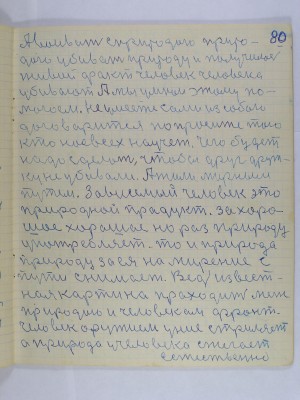 80
А воюит с природою приро-
дого убивать природу и получился
живой факт человек человека
убивает А мы учим этому по-
могаем. Не умеете сами из собой
договорится попросите того
кто нас всех научет. Чего будет
надо сделать, чтобы друг друж-
ку не убивали. А жили мирным
путем. Зависимый человек это
природной продукт. За хоро-
шое хорошое но раз природу
употребляет. то и природа
природу за ея на мирение с
пути снимает. Ведь извест-
ная картина проходит меж
природою и человекам фронт.
Человек оружием у ние стреляет
а природа у человека стегает
естественно